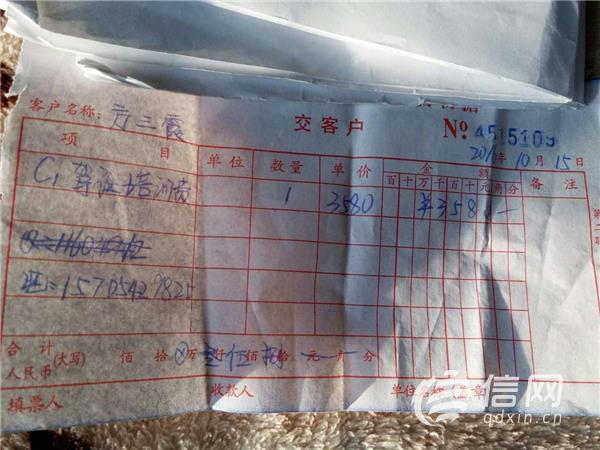 客户名称：方三霞
交客户
№ 4515109
2016年10月15日
项目 单位 数量 单价 金额 备注
百十万千百十元角分
C1 驾证培训费 1 3580 ¥358
15705429825
合计人民币(大写) 佰拾ⓧ万叁仟伍佰捌拾元角分
填票人 收款人 单位名称 章
信网
qdxin.cn